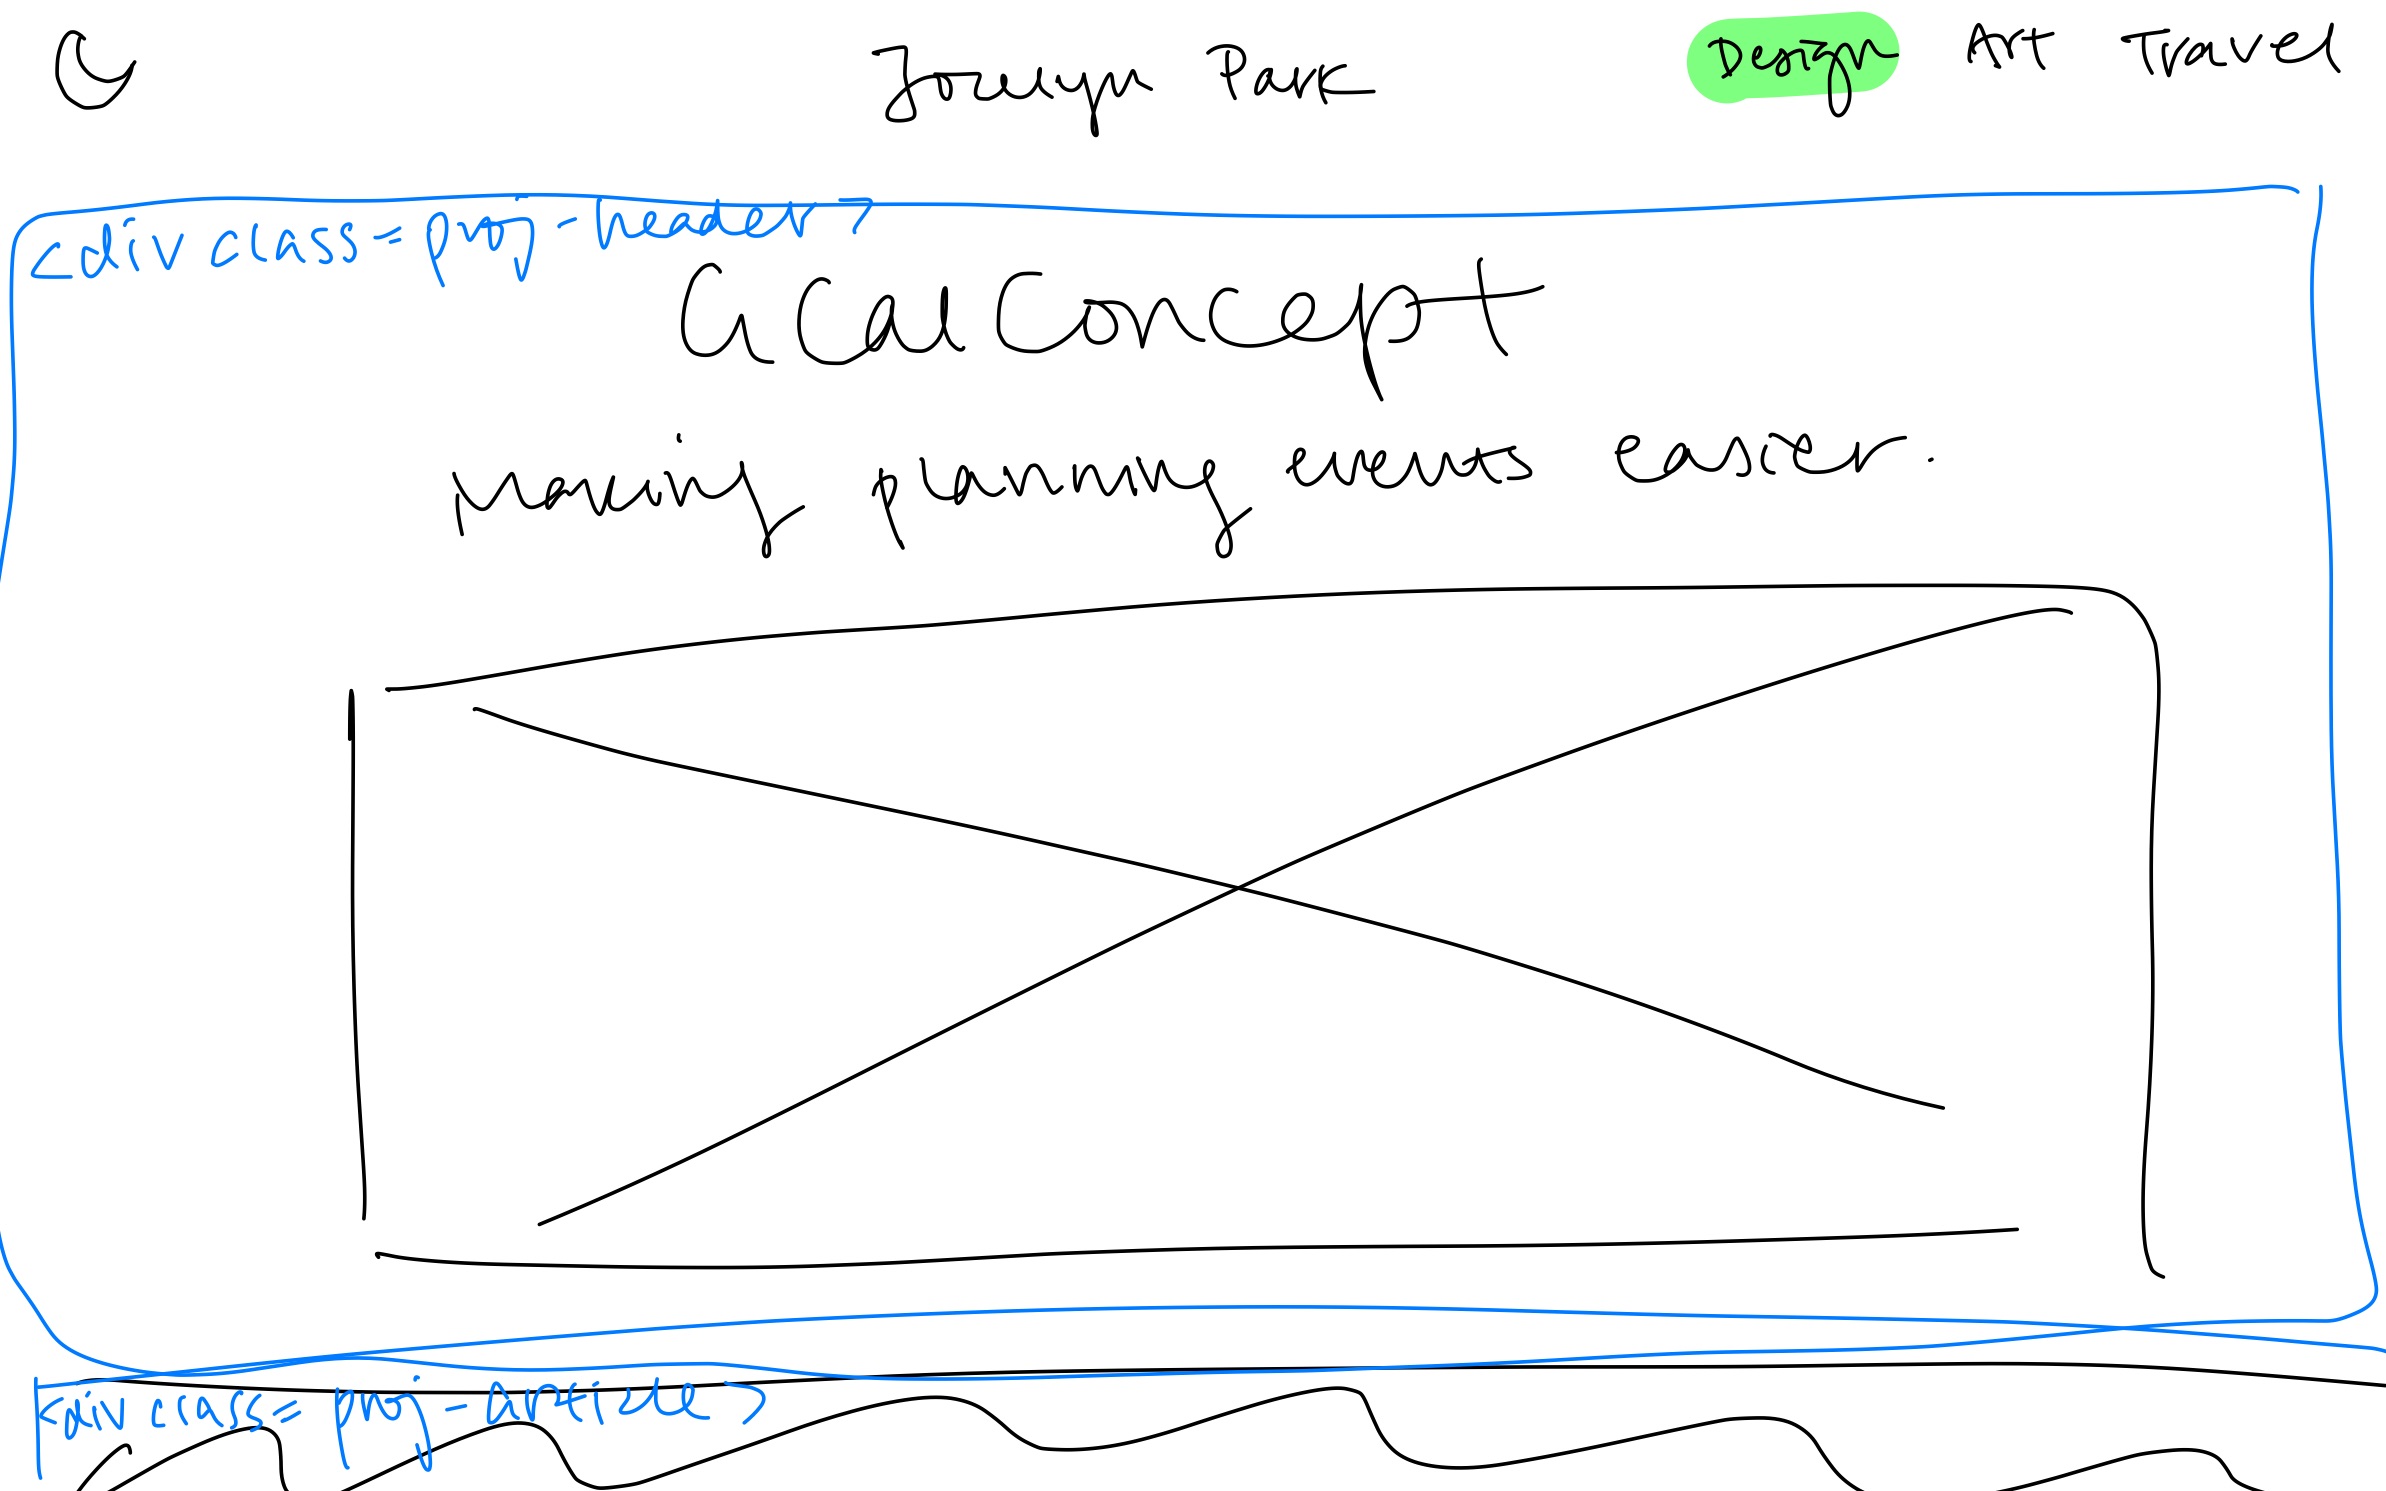 Park Design Art Travel
<div class=proj-header>
GCal Concept
Making planning events easier.
<div class= proj-article>